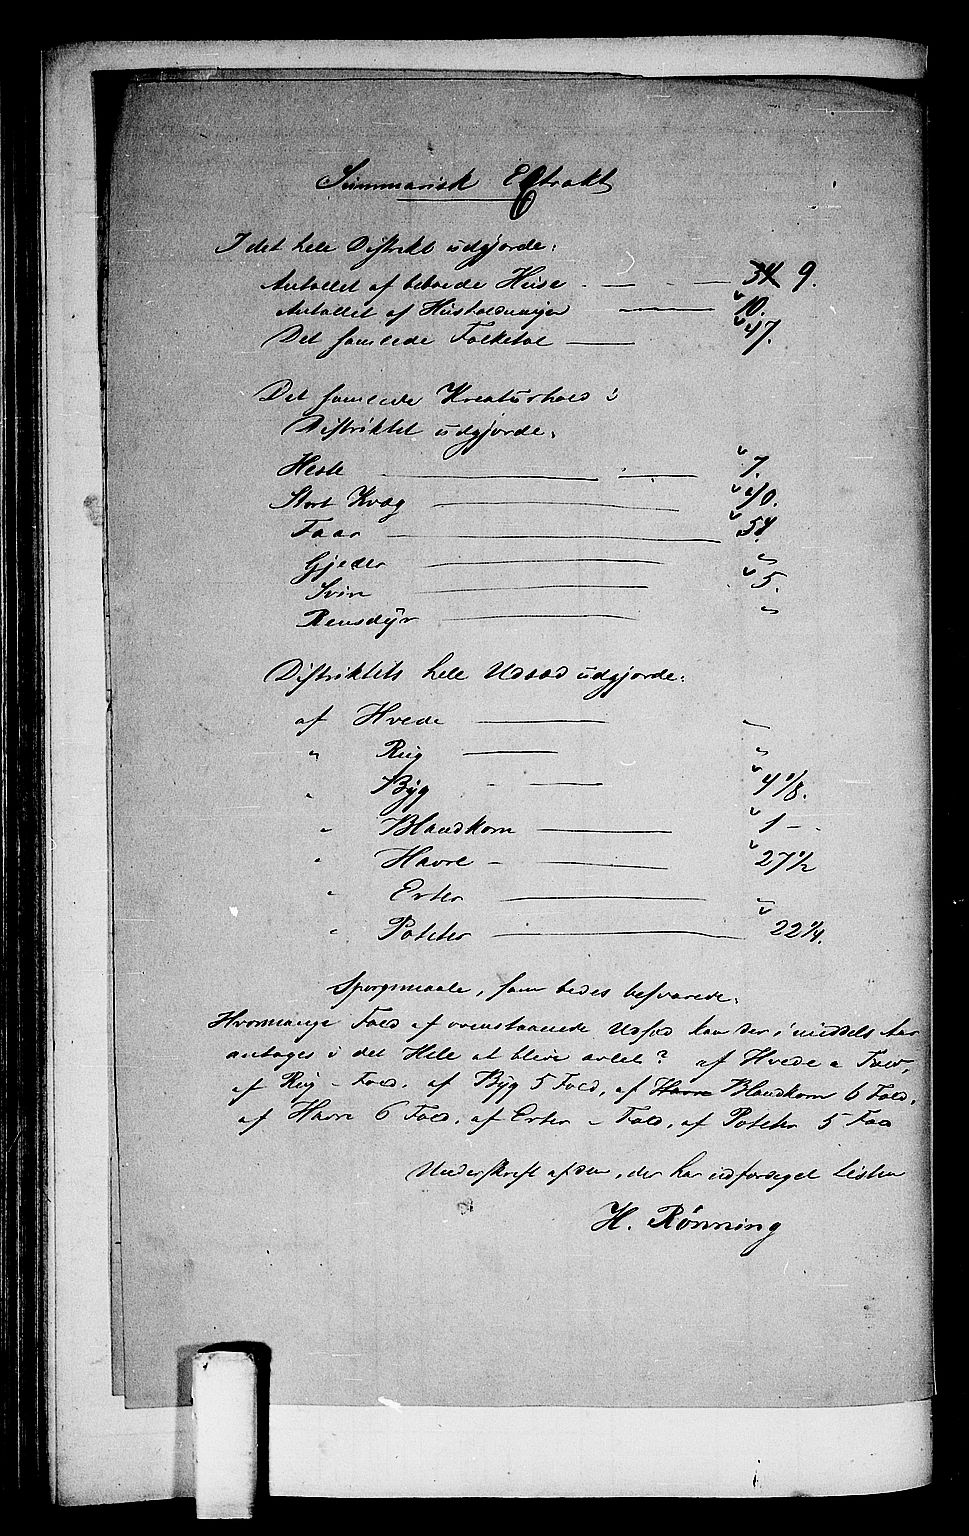 Summarisk Extrakt
I det hele Distrikt udgjorde:
Antallet af beboede Huse - — - — 34 9.
Antallet af Husholdninger — 10.
Det samlede Folketal — 47.
Det samlede Kreaturhold i
Distriktet udgjorde:
Heste — 7.
Stort Kvæg — 40.
Faar — 54.
Gjeder — "
Svin — 5.
Rensdyr — "
Distriktets hele Udsæd udgjorde:
af Hvede — "
" Rug — "
" Byg - — 4 1/8.
" Blandkorn — 1 —
" Havre - — 27 1/2
" Erter — "
" Poteter — 22 1/4.
Spørgsmaale, som bedes besvarede.
Hvormange Fold af ovenstaaende Udsæd kan der i middels Aar
antages i det Hele at blive avlet? af Hvede " Fold,
af Rug - Fold, af Byg 5 Fold, af Havre Blandkorn 6 Fold,
af Havre 6 Fold, af Erter - Fold, af Poteter 5 Fold
Underskrift af den, der har udfærdiget Listen
H. Rönning